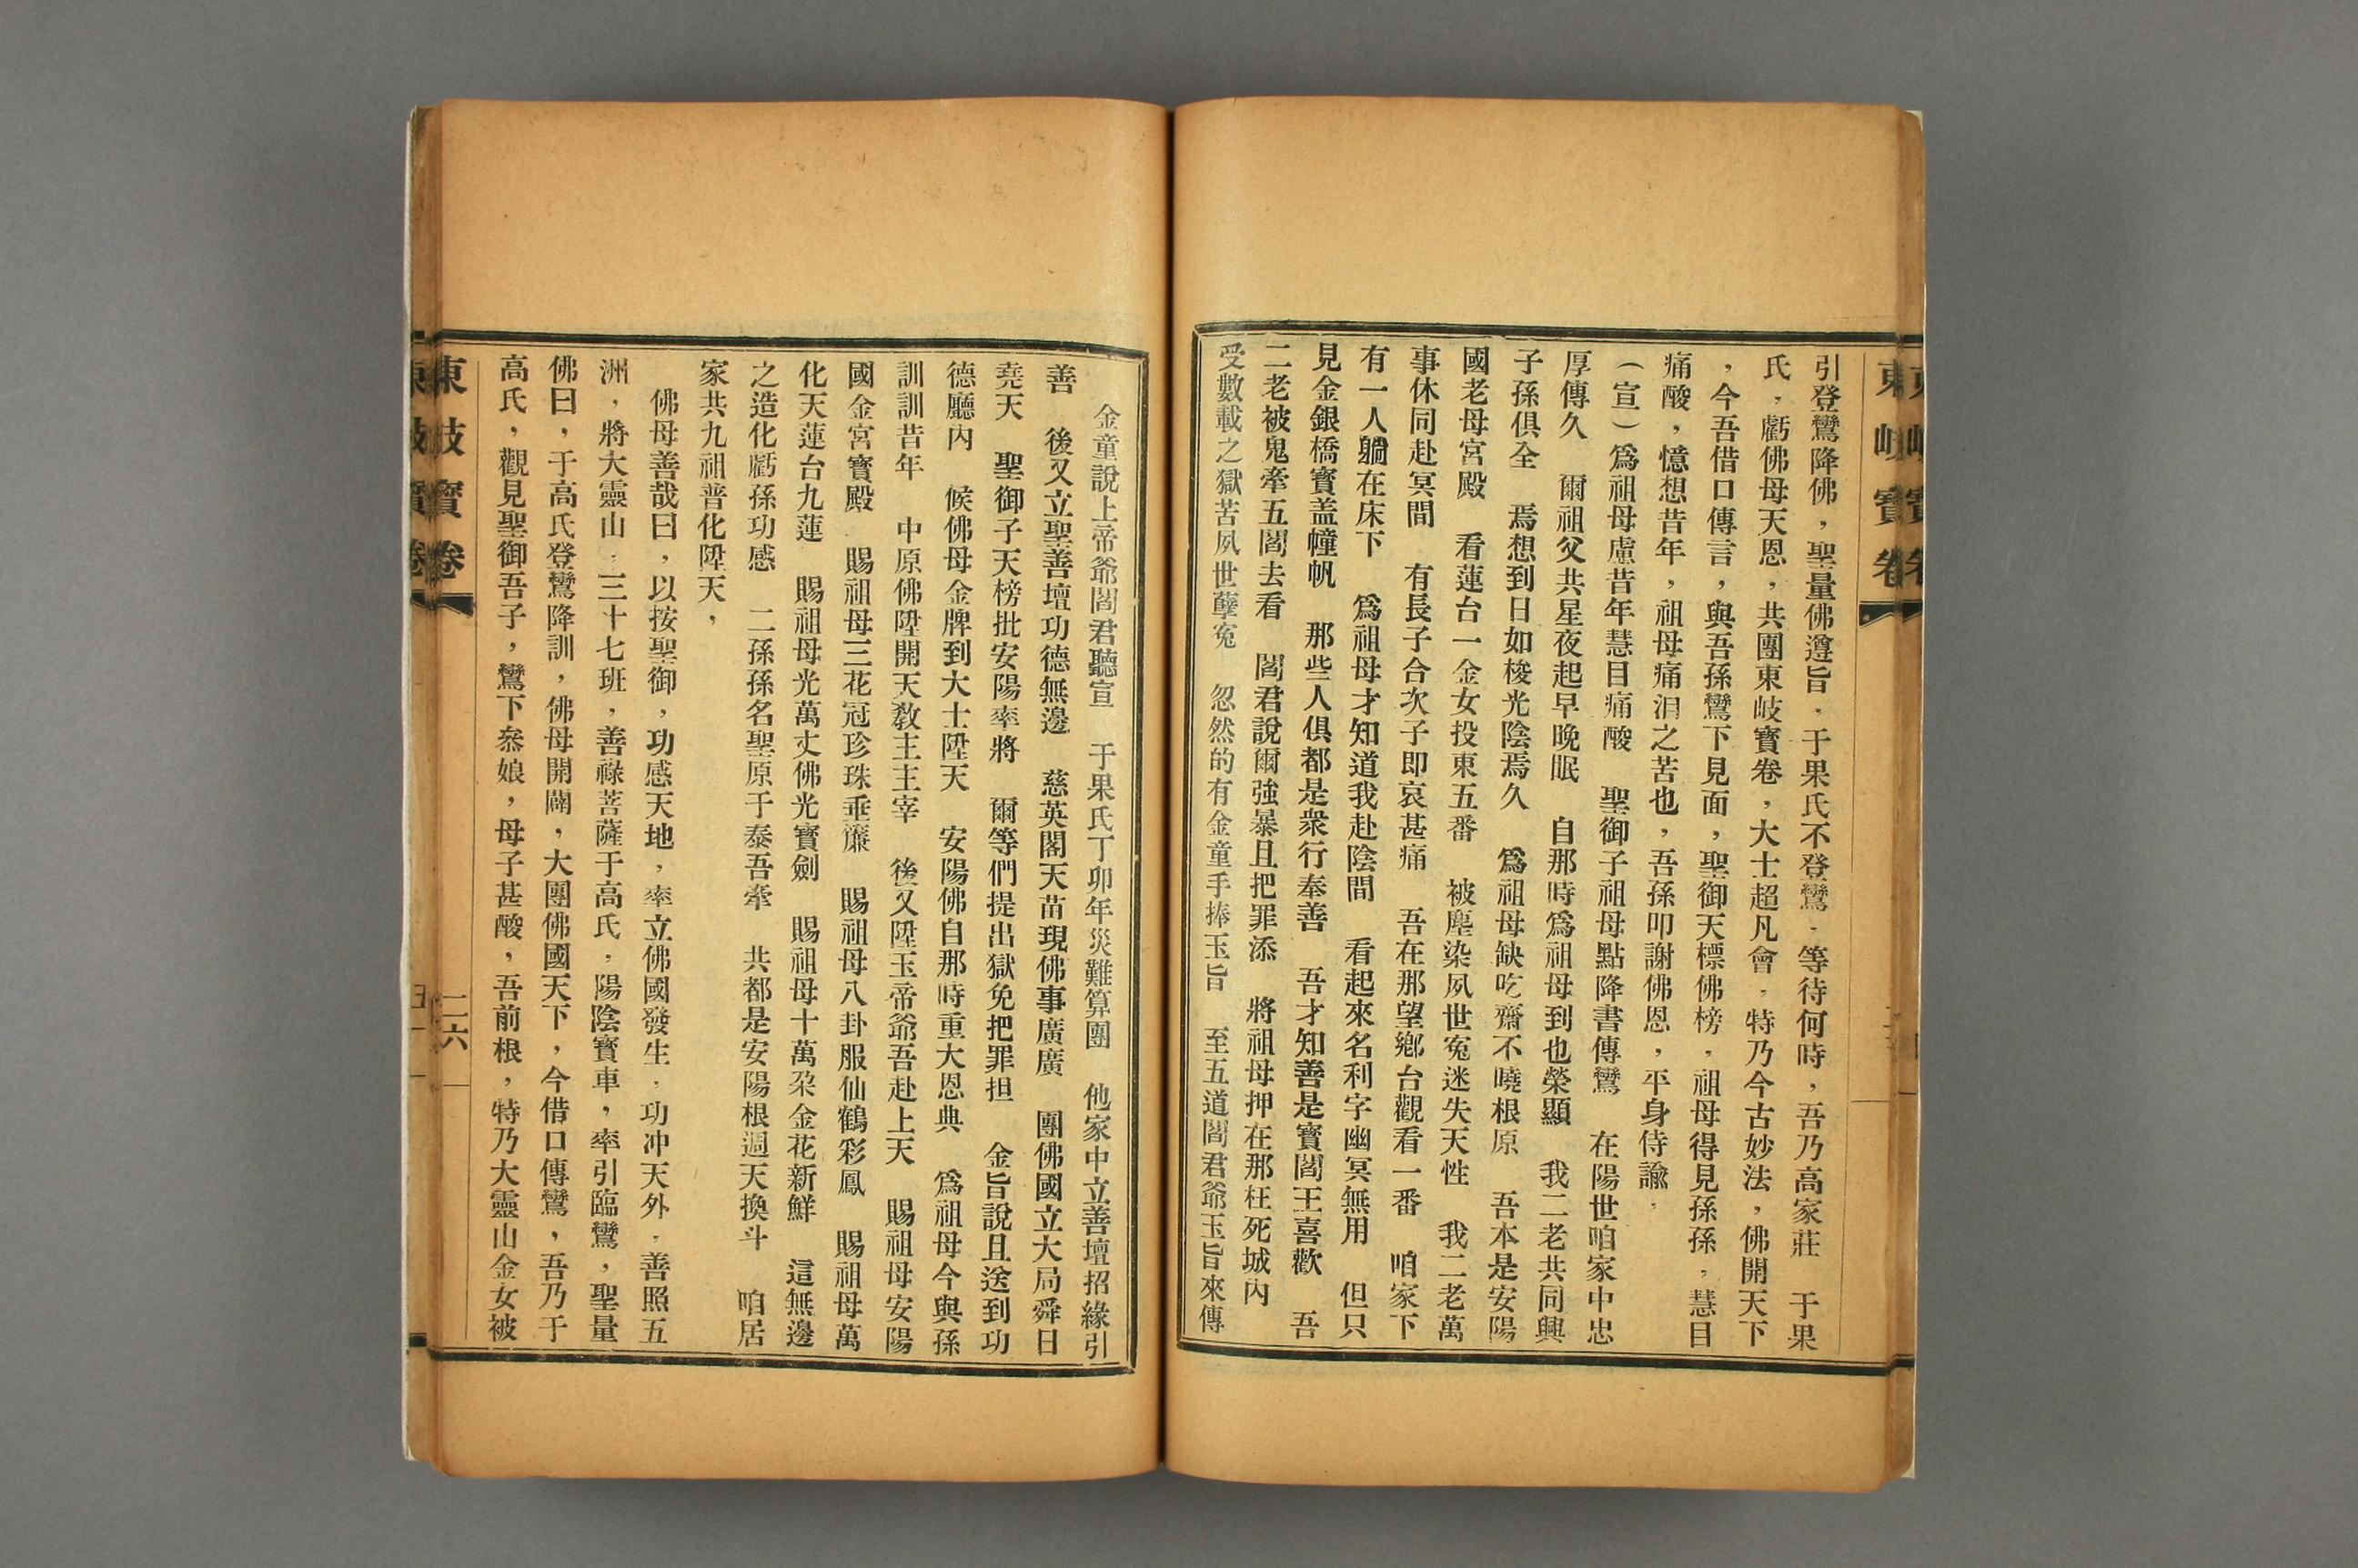 東岐寶卷
引登鸞降佛，聖量佛遵旨，于果氏不登鸞，等待何時，吾乃高家莊　于果
氏，虧佛母天恩，共團東岐寶卷，大士超凡會，特乃今古妙法，佛開天下
，今吾借口傳言，與吾孫鸞下見面，聖御天標佛榜，祖母得見孫孫，慧目
痛酸，憶想昔年，祖母痛泪之苦也，吾孫叩謝佛恩，平身侍諭，
（宣）爲祖母慮昔年慧目痛酸　聖御子祖母點降書傳鸞　在陽世咱家中忠
厚傳久　爾祖父共星夜起早晚眠　自那時爲祖母到也榮顯　我二老共同興
子孫俱全　焉想到日如梭光陰焉久　爲祖母缺吃齋不曉根原　吾本是安陽
國老母宮殿　看蓮台一金女投東五番　被塵染夙世冤迷失天性　我二老萬
事休同赴冥間　有長子合次子即哀甚痛　吾在那望鄉台觀看一番　咱家下
有一人躺在床下　爲祖母才知道我赴陰間　看起來名利字幽冥無用　但只
見金銀橋寶盖幢帆　那些人俱都是衆行奉善　吾才知善是寶閻王喜歡　吾
二老被鬼牽五閻去看　閻君說爾強暴且把罪添　將祖母押在那枉死城內
受數載之獄苦夙世孽冤　忽然的有金童手捧玉旨　至五道閻君爺玉旨來傳
金童說上帝爺閻君聽宣　于果氏丁卯年災難算團　他家中立善壇招緣引
善　後又立聖善壇功德無邊　慈英閣天苗現佛事廣廣　團佛國立大局舜日
堯天　聖御子天榜批安陽率將　爾等們提出獄免把罪担　金旨說且送到功
德廳內　候佛母金牌到大士陞天　安陽佛自那時重大恩典　爲祖母今與孫
訓訓昔年　中原佛陞開天教主主宰　後又陞玉帝爺吾赴上天　賜祖母安陽
國金宮寶殿　賜祖母三花冠珍珠垂簾　賜祖母八卦服仙鶴彩鳳　賜祖母萬
化天蓮台九蓮　賜祖母光萬丈佛光寶劍　賜祖母十萬朶金花新鮮　這無邊
之造化虧孫功感　二孫孫名聖原于泰吾牽　共都是安陽根週天換斗　咱居
家共九祖普化陞天，
佛母善哉曰，以按聖御，功感天地，率立佛國發生，功冲天外，善照五
洲，將大靈山，三十七班，善祿菩薩于高氏，陽陰寶車，率引臨鸞，聖量
佛曰，于高氏登鸞降訓，佛母開闢，大團佛國天下，今借口傳鸞，吾乃于
高氏，觀見聖御吾子，鸞下叅娘，母子甚酸，吾前根，特乃大靈山金女被
東岐寶卷
二六